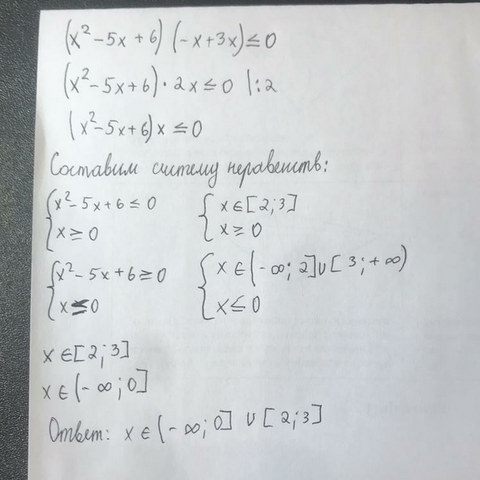 (x²-5x+6)(-x+3x)≤0
(x²-5x+6)·2x≤0 |:2
(x²-5x+6)x≤0
Составим систему неравенств:
{x²-5x+6≤0 {x∈[2;3]
{x≥0 {x≥0
{x²-5x+6≥0 {x∈(-∞;2]∪[3;+∞)
{x≤0 {x≤0
x∈[2;3]
x∈(-∞;0]
Ответ: x∈(-∞;0]∪[2;3]